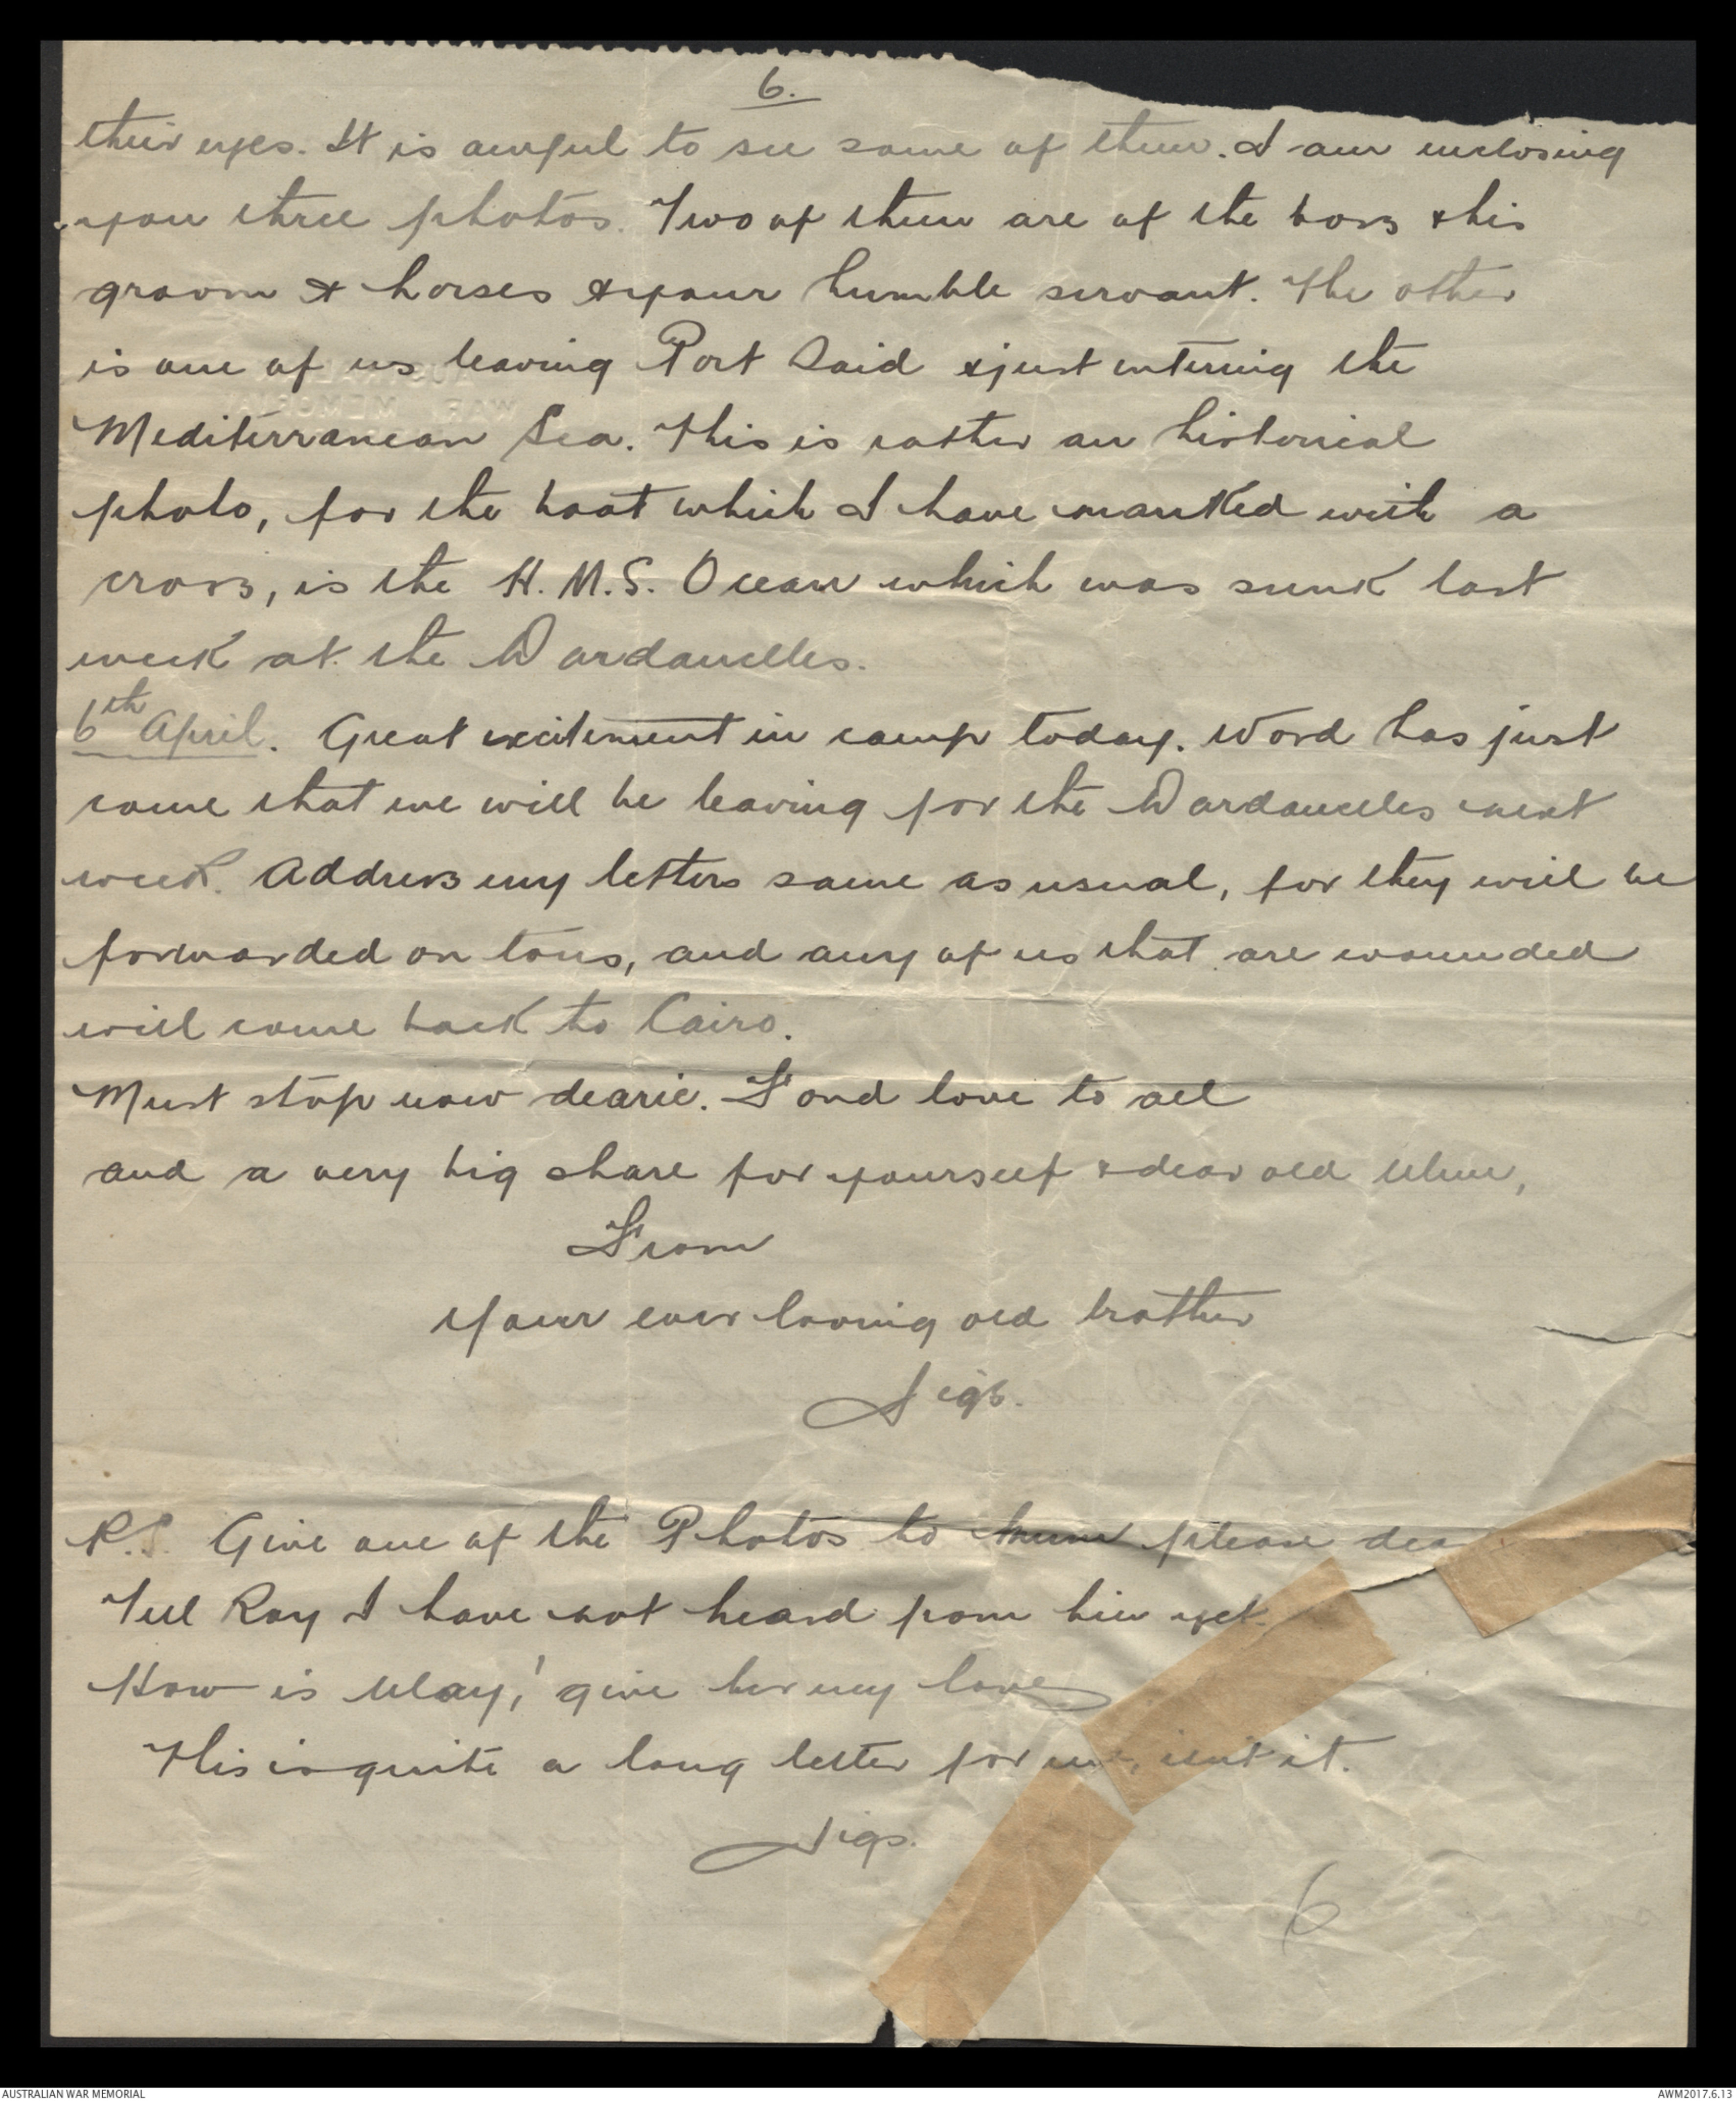 6.
their eyes. It is awful to see some of them. I am enclosing
you three photos. Two of them are of the boss & his
groom & horses & your humble servant. The other
is one of us leaving Port Said & just entering the
Mediterranean Sea. This is rather an historical
photo, for the boat which I have marked with a
cross, is the H.M.S. Ocean which was sunk last
week at the Dardanelles.
6th April. Great excitement in camp today. Word has just
come that we will be leaving for the Dardanelles next
week. Address my letters same as usual, for they will be
forwarded on to us, and any of us that are wounded
will come back to Cairo.
Must stop now dearie. Fond love to all
and a very big share for yourself & dear old Mum,
From
Your ever loving old brother
Sigs.
P.S. Give one of the Photos to Mum please dear
Tell Ray I have not heard from him yet.
How is May, give her my love
This is quite a long letter for me, isn't it.
Sigs.
6
AUSTRALIAN WAR MEMORIAL
AWM2017.6.13